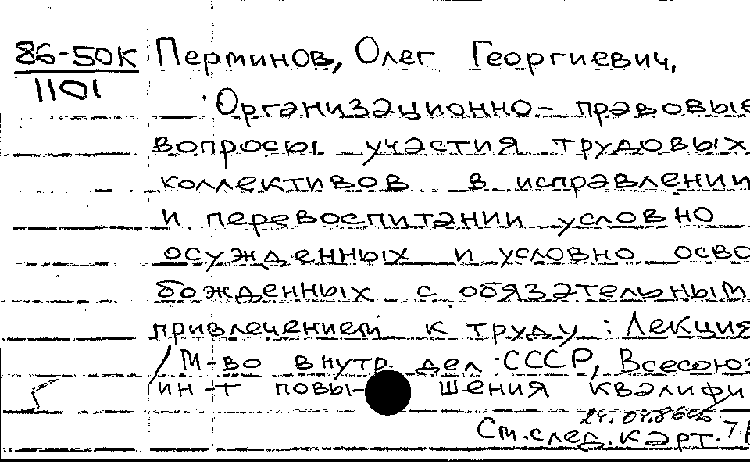 86-50К Перминов, Олег Георгиевич,
1101
Организационно-правовые
вопросы участия трудовых
коллективов в исправлении
и перевоспитании условно
осужденных и условно осво
божденных с обязательным
привлечением к труду: Лекция
/М-во внутр дел СССР, Всесоюз
ин-т повышения квалифи
См.след.карт.